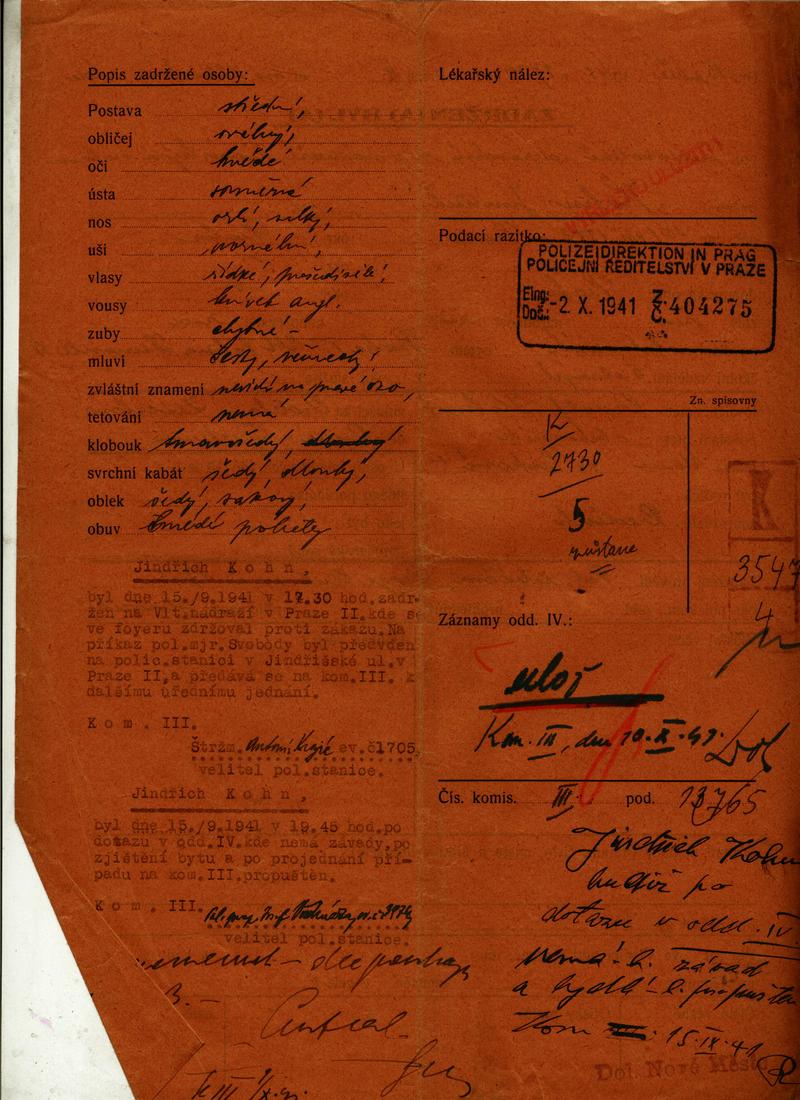 Popis zadržené osoby:
Postava střední,
obličej oválný,
oči hnědé
ústa souměrná
nos orlí, velký,
uši normální,
vlasy řídké, prošedivělé,
vousy knírek angl.
zuby chybné
mluví česky, německy,
zvláštní znamení nevidí na pravé oko,
tetování nemá
klobouk tmavošedý,
svrchní kabát šedý, dlouhý,
oblek šedý, sakový,
obuv hnědé polboty
Jindřich Kohn,
byl dne 15./9.1941 v 17.30 hod.zadr-
žen na Vlt.nádraží v Praze II.kde se
ve foyeru zdržoval proti zákazu.Na
příkaz pol.mjr.Svobody byl předveden
na polic.stanici v Jindřišské ul.v
Praze II,a předává se na kom.III. k
dalšímu úřednímu jednání.
Kom. III.
Stržm. Antonín ev.č1705,
velitel pol.stanice.
Jindřich Kohn,
byl dne 15./9.1941 v 19.45 hod.po
dotazu v odd.IV.kde nemá závady,po
zjištění bytu a po projednání pří-
padu na kom.III.propuštěn.
Kom. III.
velitel pol.stanice.
Lékařský nález:
Podací razítko:
POLIZEIDIREKTION IN PRAG
POLICEJNÍ ŘEDITELSTVÍ V PRAZE
Eing.:
Doš.: -2. X. 1941 Z. Č. 404275
Zn. spisovny
K
2730
5
zůstane
K
3547
4
Záznamy odd. IV.:
ulož
Kom. III, den 10.X.41.
Čís. komis. III. pod. 13765
Jindřich Kohn
budiž po
dotazu v odd. IV
nemá-li závad
a bydlí-li propuštěn
Kom III. 15.IX.41
Dol. Nové Město